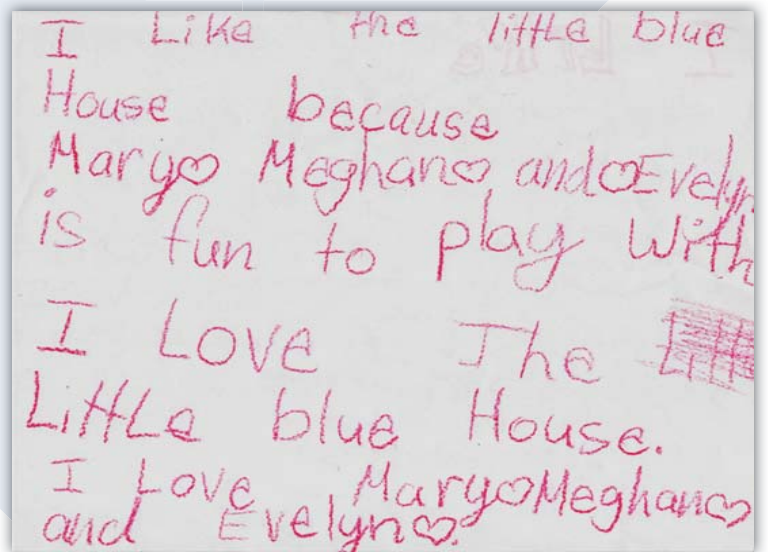 I Like the little blue
House because
Mary♡ Meghan♡ and♡Evelyn
is fun to play With
I Love The
LittLe blue House.
I Love Mary♡Meghan♡
and Evelyn♡.